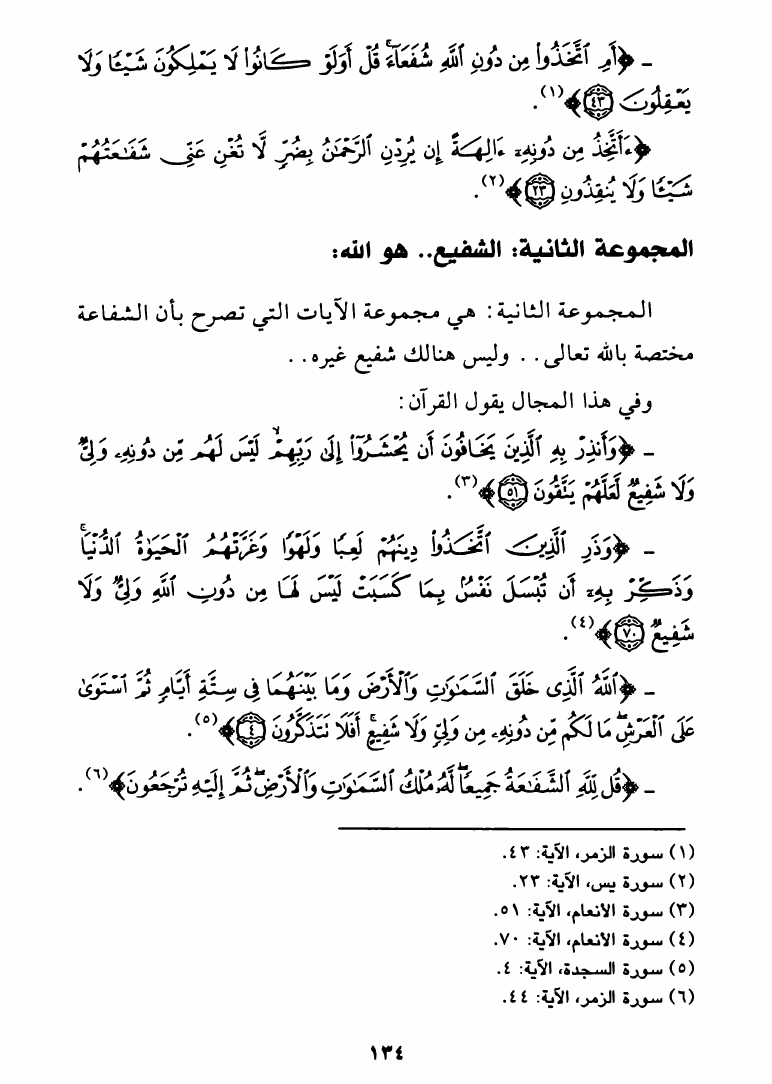 ـ ﴿أَمِ ٱتَّخَذُوا۟ مِن دُونِ ٱللَّهِ شُفَعَآءَ ۚ قُلْ أَوَلَوْ كَانُوا۟ لَا يَمْلِكُونَ شَيْـًٔا وَلَا
يَعْقِلُونَ ٤٣﴾(١).
﴿ءَأَتَّخِذُ مِن دُونِهِۦٓ ءَالِهَةً إِن يُرِدْنِ ٱلرَّحْمَـٰنُ بِضُرٍّ لَّا تُغْنِ عَنِّى شَفَـٰعَتُهُمْ
شَيْـًٔا وَلَا يُنقِذُونِ ٢٣﴾(٢).
المجموعة الثانية: الشفيع.. هو الله:
المجموعة الثانية: هي مجموعة الآيات التي تصرح بأن الشفاعة
مختصة بالله تعالى.. وليس هنالك شفيع غيره..
وفي هذا المجال يقول القرآن:
ـ ﴿وَأَنذِرْ بِهِ ٱلَّذِينَ يَخَافُونَ أَن يُحْشَرُوٓا۟ إِلَىٰ رَبِّهِمْ ۙ لَيْسَ لَهُم مِّن دُونِهِۦ وَلِىٌّ
وَلَا شَفِيعٌ لَّعَلَّهُمْ يَتَّقُونَ ٥١﴾(٣).
ـ ﴿وَذَرِ ٱلَّذِينَ ٱتَّخَذُوا۟ دِينَهُمْ لَعِبًا وَلَهْوًا وَغَرَّتْهُمُ ٱلْحَيَوٰةُ ٱلدُّنْيَا ۚ
وَذَكِّرْ بِهِۦٓ أَن تُبْسَلَ نَفْسٌۢ بِمَا كَسَبَتْ لَيْسَ لَهَا مِن دُونِ ٱللَّهِ وَلِىٌّ وَلَا
شَفِيعٌ ٧٠﴾(٤).
ـ ﴿ٱللَّهُ ٱلَّذِى خَلَقَ ٱلسَّمَـٰوَٰتِ وَٱلْأَرْضَ وَمَا بَيْنَهُمَا فِى سِتَّةِ أَيَّامٍ ثُمَّ ٱسْتَوَىٰ
عَلَى ٱلْعَرْشِ ۖ مَا لَكُم مِّن دُونِهِۦ مِن وَلِىٍّ وَلَا شَفِيعٍ ۚ أَفَلَا تَتَذَكَّرُونَ ٤﴾(٥).
ـ ﴿قُل لِّلَّهِ ٱلشَّفَـٰعَةُ جَمِيعًا ۖ لَّهُۥ مُلْكُ ٱلسَّمَـٰوَٰتِ وَٱلْأَرْضِ ۖ ثُمَّ إِلَيْهِ تُرْجَعُونَ﴾(٦).
(١) سورة الزمر، الآية: ٤٣.
(٢) سورة يس، الآية: ٢٣.
(٣) سورة الأنعام، الآية: ٥١.
(٤) سورة الأنعام، الآية: ٧٠.
(٥) سورة السجدة، الآية: ٤.
(٦) سورة الزمر، الآية: ٤٤.
١٣٤